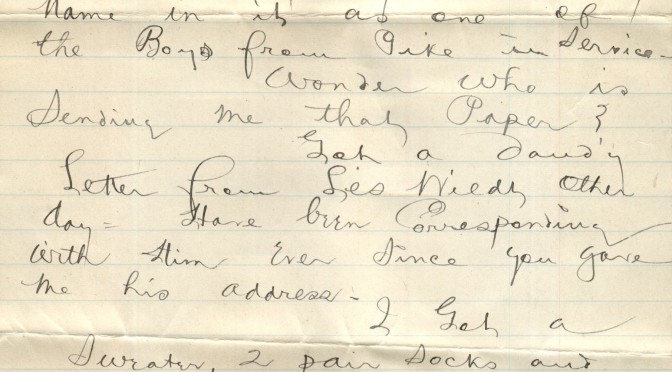 Name in it as one of
the Boys from Pike in Service-
Wonder who is
Sending me that Paper?
Got a Dandy
Letter from Les Other
day= Have been Corresponding
with Him Ever Since you gave
me his address-
I Got a
Sweater, 2 pair Socks and